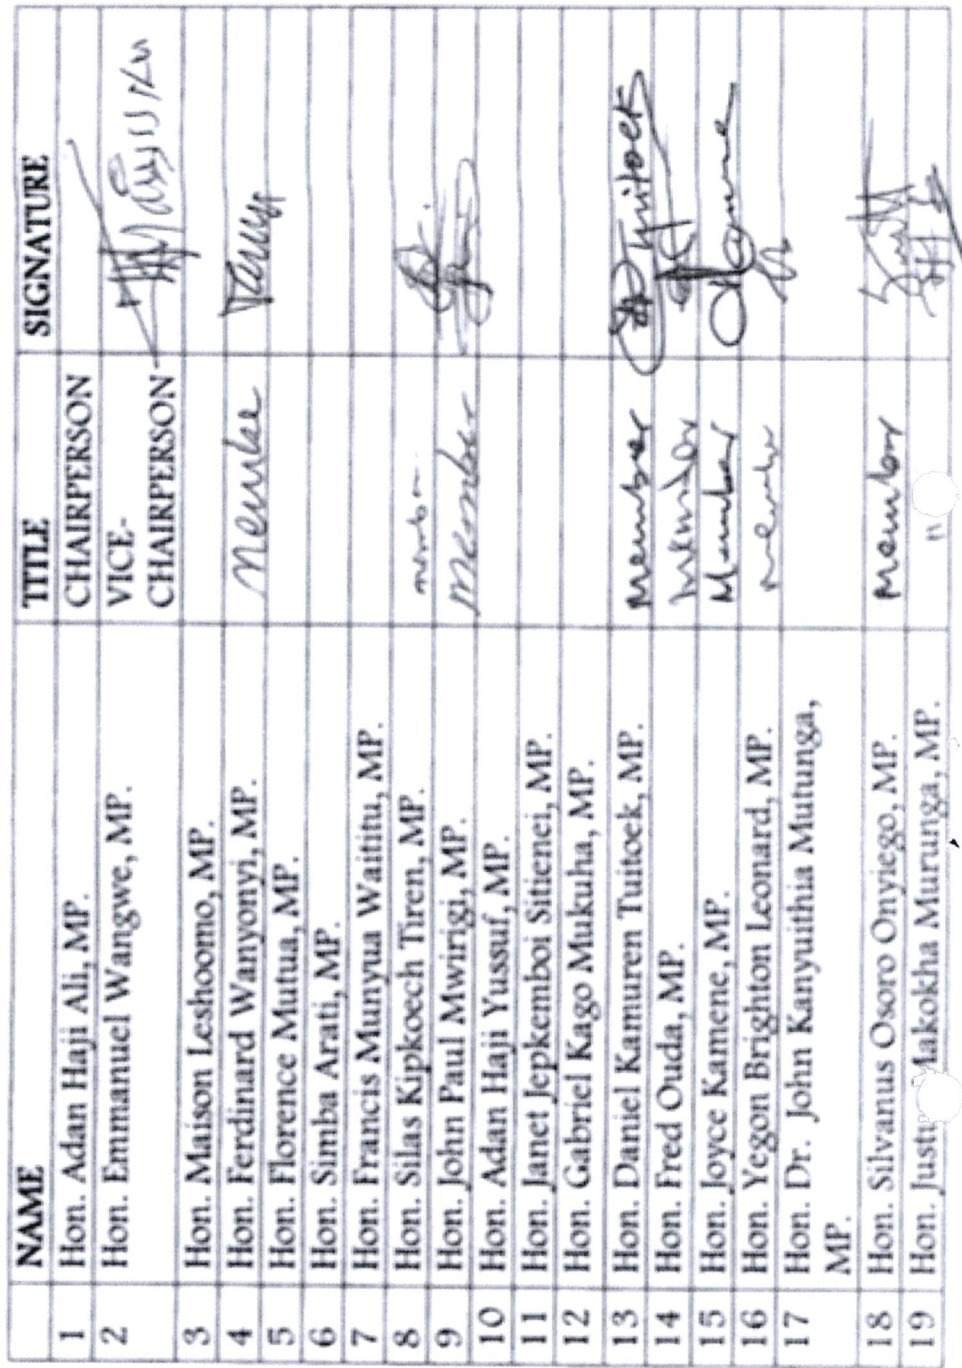 NAME TITLE SIGNATURE
1 Hon. Adan Haji Ali, MP. CHAIRPERSON
2 Hon. Emmanuel Wangwe, MP. VICE-
CHAIRPERSON
3 Hon. Maison Leshoomo, MP.
4 Hon. Ferdinard Wanyonyi, MP. Member
5 Hon. Florence Mutua, MP.
6 Hon. Simba Arati, MP.
7 Hon. Francis Munyua Waititu, MP.
8 Hon. Silas Kipkoech Tiren, MP. member
9 Hon. John Paul Mwirigi, MP. Member
10 Hon. Adan Haji Yussuf, MP.
11 Hon. Janet Jepkemboi Sitienei, MP.
12 Hon. Gabriel Kago Mukuha, MP.
13 Hon. Daniel Kamuren Tuitoek, MP. Member
14 Hon. Fred Ouda, MP. Member
15 Hon. Joyce Kamene, MP. Member
16 Hon. Yegon Brighton Leonard, MP. member
17 Hon. Dr. John Kanyuithia Mutunga,
MP.
18 Hon. Silvanus Osoro Onyiego, MP. Member
19 Hon. Makokha Murunga, MP. "